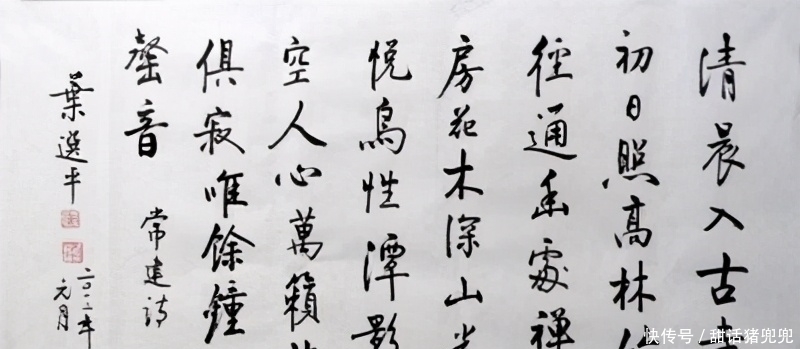 清晨入古
初日照高林
徑通幽處禪
房花木深山光
悅鳥性潭影
空人心萬籟
俱寂唯餘鍾
罄音
常建詩
葉選平
元月
快传号 / 甜话猪兜兜